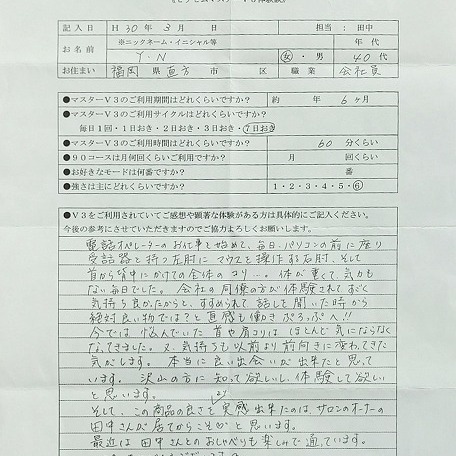 記入日 H 30年 3月 日 担当：田中
お名前 ※ニックネーム・イニシャル等 Y・N 女・男 年代 40代
お住まい 福岡 県 直方 市 区 職業 会社員
●マスターV3のご利用期間はどれくらいですか？ 約 年 6ヶ月
●マスターV3のご利用サイクルはどれくらいですか？
毎日1回・1日おき・2日おき・3日おき・7日おき
●マスターV3のご利用時間はどれくらいですか？ 60 分くらい
●90コースは月何回くらいご利用ですか？ 月 回くらい
●お好きなモードは何番ですか？ 番
●強さは主にどれくらいですか？ 1・2・3・4・5・6
●V3をご利用されていてご感想や顕著な体験がある方は具体的にご記入ください。
今後の参考にさせていただきますのでご協力よろしくお願いします。
電話オペレーターのお仕事を始めて、毎日、パソコンの前に座り
受話器と持つ左肘に マウスを操作する右肘、そして
首から背中にかけての全体のコリ…。体が重くて、気力も
ない毎日でした。会社の同僚の方が体験されてすごく
気持ち良かったからと、すすめられて 話して聞いた時から
絶対良い物では？と 直感も働き ぷろっぷへ!!
今では 悩んでいた 首や肩コリは ほとんど気にならなく
なってきました。又、気持ちも 以前より前向きに変わってきた
気がします。本当に良い出会いが出来たと思って
います。沢山の方に知って欲しいし、体験して欲しい
と思います。
そして、この商品の良さを実感出来たのは、サロンのオーナーの
田中さんが居てからこそ♡と思います。
最近は 田中さんとのおしゃべりも楽しみで 通っています。